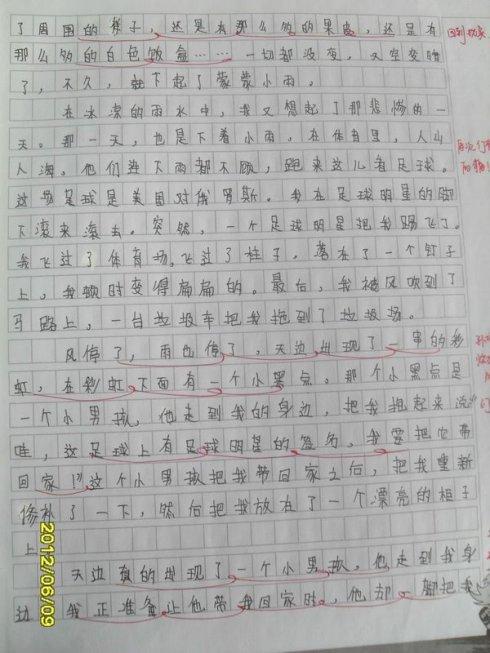 了周围的样子，还是有那么多的果皮，还是有
那么多的白色饭盒……一切都没变，天空变暗
了，不久，就下起了蒙蒙小雨。
在冰凉的雨水中，我又想起了那悲惨的一
天。那一天，也是下着小雨。在体育里，人山
人海。他们连下雨都不顾，跑来这儿看足球。
这场足球是美国对俄罗斯。我在足球明星的脚
下滚来滚去。突然，一个足球明星把我踢飞了。
我飞过了体育场，飞过了柱子。落在了一个钉子
上，我顿时变得扁扁的。最后，我被风吹到了
马路上，一台垃圾车把我拖到了垃圾场。
风停了，雨也停了，天边出现了一串的彩
虹，在彩虹下面有一个小黑点。那个小黑点是
一个小男孩，他走到我的身边，把我抱起来说
哇，这足球上有足球明星的签名，我要把它带
回家！”这个小男孩把我带回家之后，把我重新
修补了一下，然后把我放在了一个漂亮的柜子
上。
天边真的出现了一个小男孩，他走到我身
边，我正准备让他带我回家时，他却一脚把我
回到现实
2012/06/09